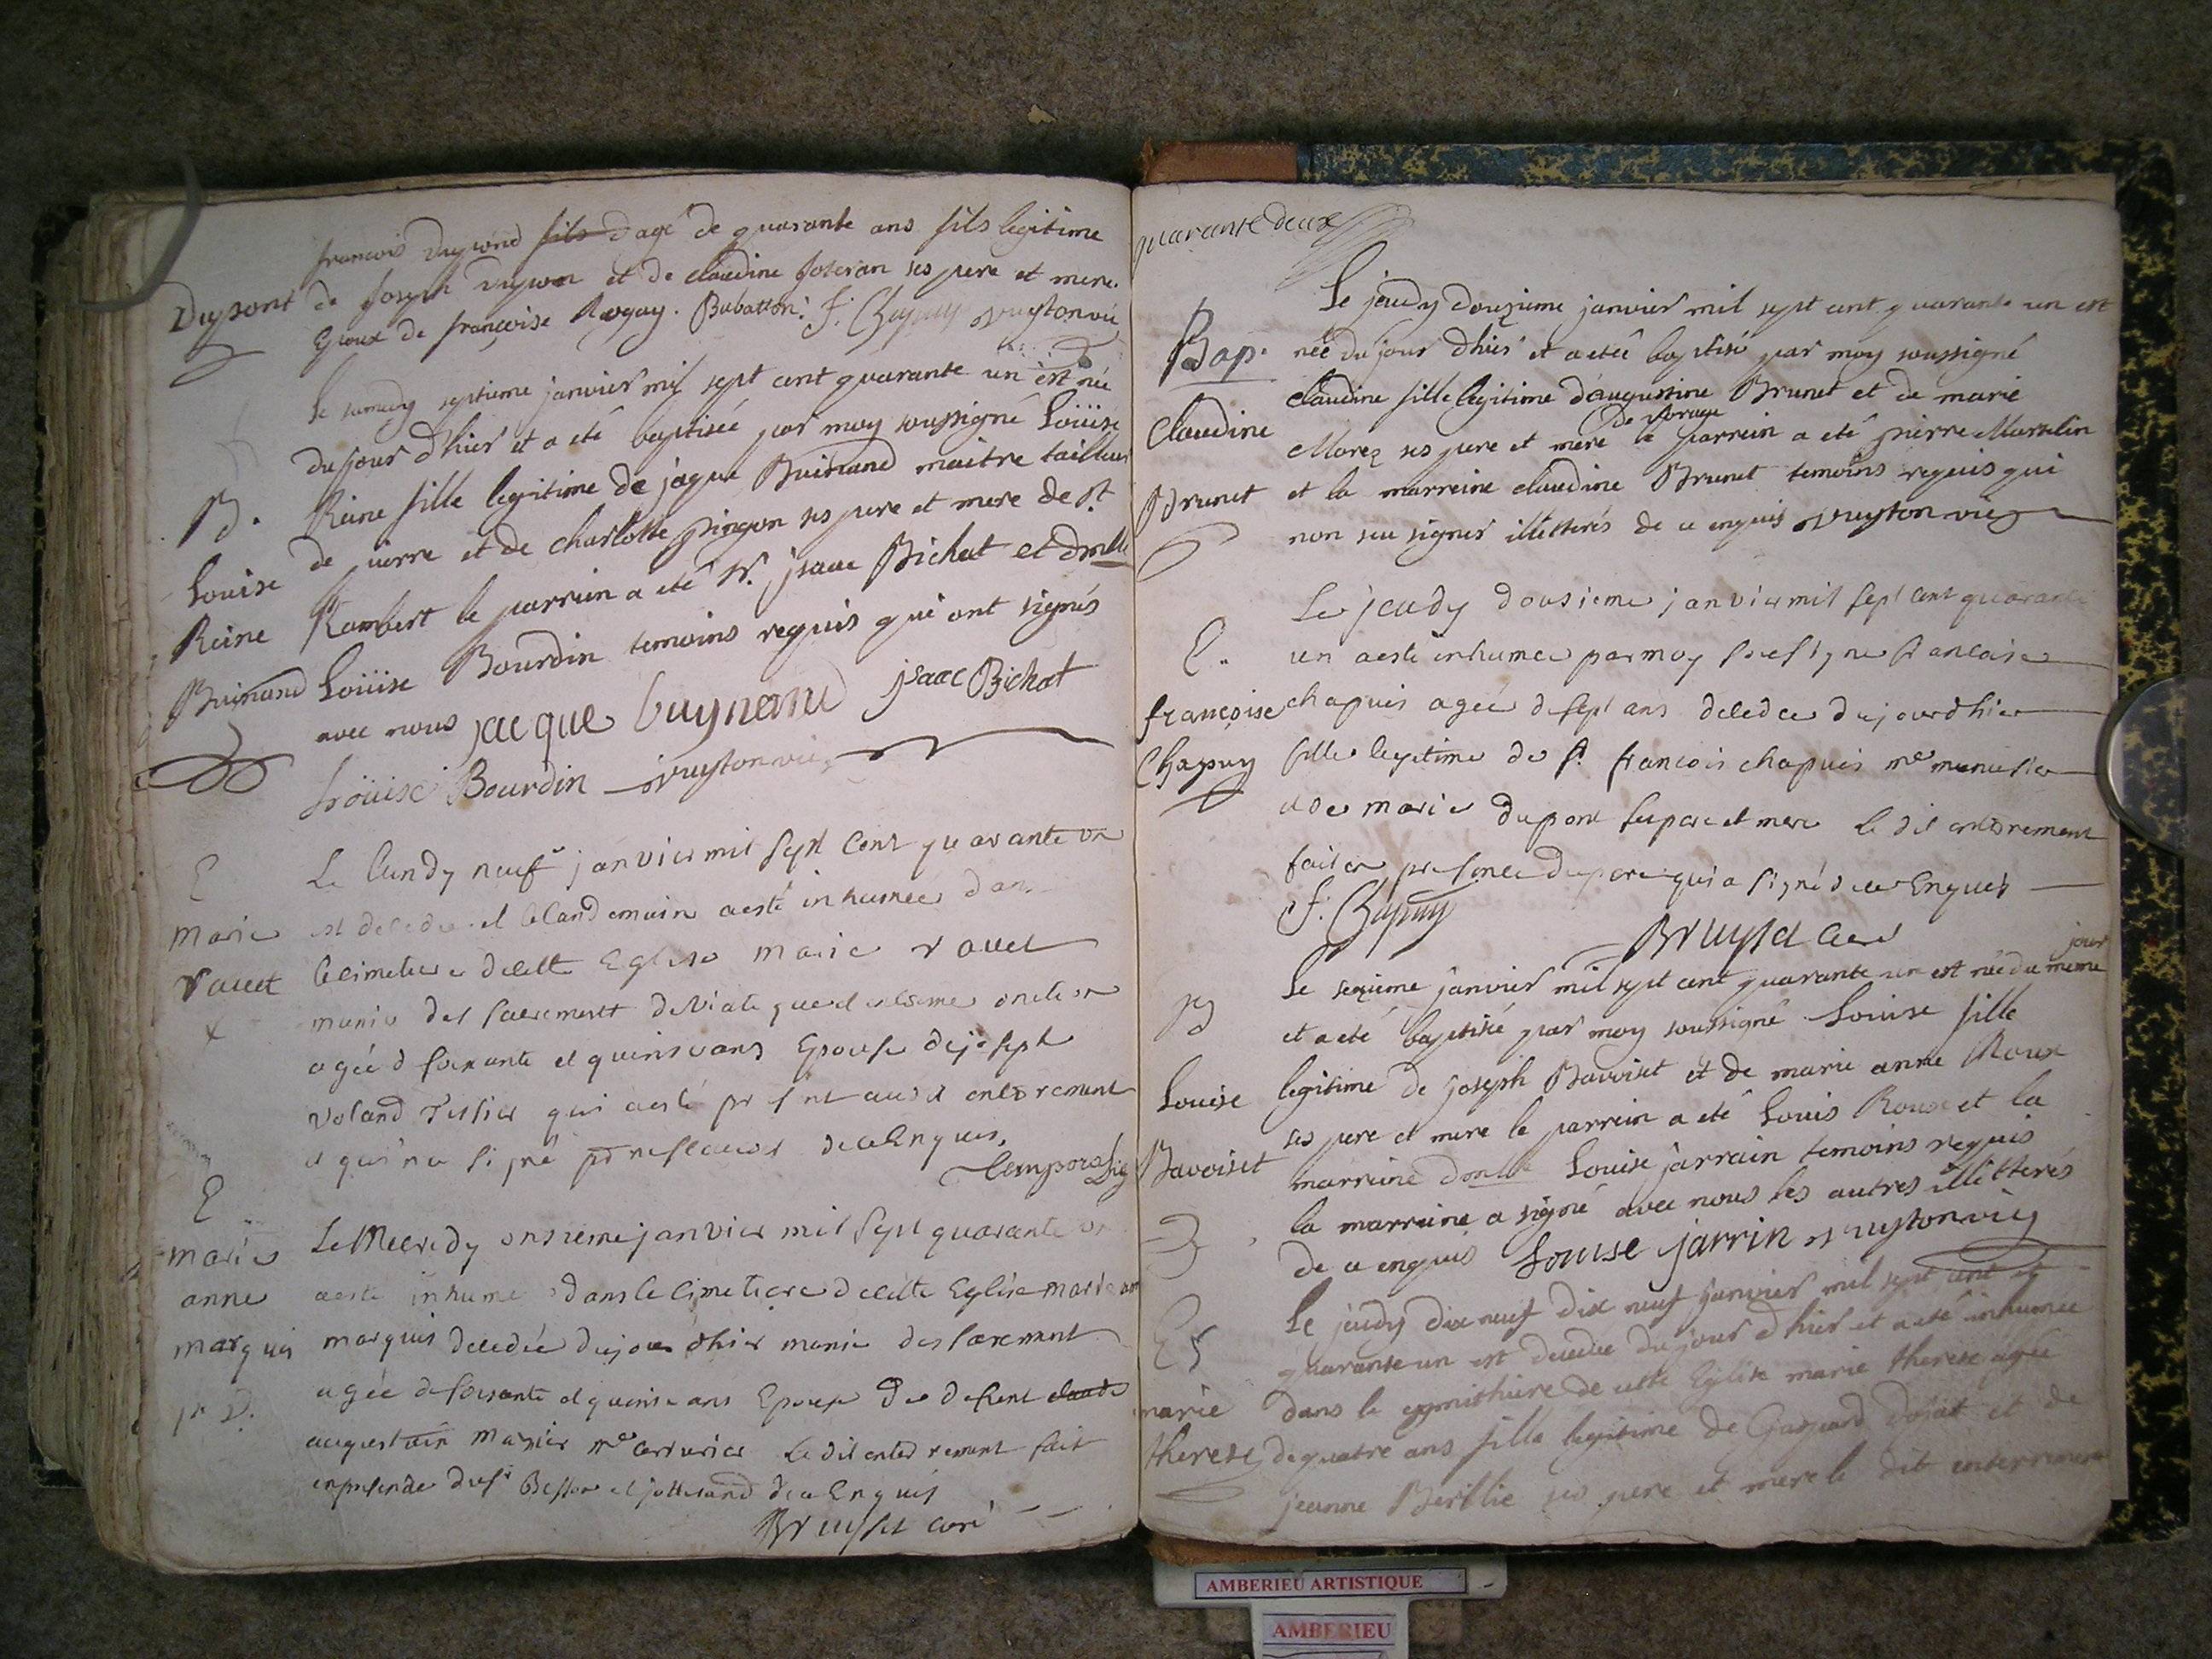 francois Dupond fils d agé de quarante ans fils legitime
Dupont de Joseph Dupon et de claudine Joteran ses pere et mere.
Epoux de françoise Rogay. Babatton. F. Chapuy
le samedy septieme janvier mil sept cent quarante un est née
du jour d'hier et a eté baptisée par moy soussigné Loüise
B. Reine fille legitime de jaque Buinand maitre tailleur
Louise de pierre et de charlotte pingon ses pere et mere de St
Reine Rambert le parrein a eté Sr. jsaac Bichat et dmlle
Buinand Loüise Bourdin temoins requis qui ont signés
avec nous jacque buynand jsaac Bichat
Loüise Bourdin
E Le lundy neuf janvier mil sept cent quarante un
Marie est decedee et le landemain a esté inhumée dan
ravet le cimetiere de cette Eglise Marie ravet
munie des sacrements de Viatique et extreme onction
agée d soixante et quinse ans Epouse de joseph
voland Tissier qui a esté present au d enterement
et qui n'a signé de ce Enquis.
E
Marie Le Mecredy onsieme janvier mil sept quarante un
anne a esté inhumé dans le cimetiere de cette Eglise marie ann
marquis marquis decedée du jour d'hier munie des sacrement
agée de soisante et quinse ans Epouse de defunt claude
augustain Manier me le dit enterrement fait
en presence du sr Besson et jotterand de ce Enquis
Bruysset curé
quarante deux
Le jeudy douzieme janvier mil sept cent quarante un est
Bap. née du jour d'hier et a eteé baptisé par moy soussigné
claudine fille legitime d'augustine Brunet et de marie
de vorage
Claudine Morez ses pere et mere le parrein a eté pierre Marselin
Brunet et la marreine claudine Brunet temoins requis qui
non seu signer illitterés de ce enquis
Le jeudy dousieme janvier mil sept cent quarante
E. un a esté inhumee par moy soussigne francoise
françoise chapuis agée de sept ans decedee du jour d'hier
Chapuy fille legitime de sr. francois chapuis me menusier
et de marie dupont ses pere et mere le dit enterement
fait en presence du pere qui a signé de ce Enquis
F. Chapuy
Bruysset curé
jour
Le sezieme janvier mil sept cent quarante un est née du meme
B et a eté baptisé par moy soussigné Louise fille
Louise legitime de Joseph Bavoiset et de marie anne Roux
ses pere et mere le parrein a eté Louis Roux et la
Bavoiset marreine dmlle Louise jarrain temoins requis
la marreine a signé avec nous les autres illitterés
de ce enquis Louise jarrin
Le jeudy dix neuf dix neuf Janvier mil sept cent et
E quarante un est decedée du jour d'hier et a eté inhumée
marie dans le cymithiere de cette Eglise marie therese agée
therese de quatre ans fille legitime de Gaspard et de
jeanne Berthe ses pere et mere le dit enterrement
AMBERIEU ARTISTIQUE
AMBERIEU